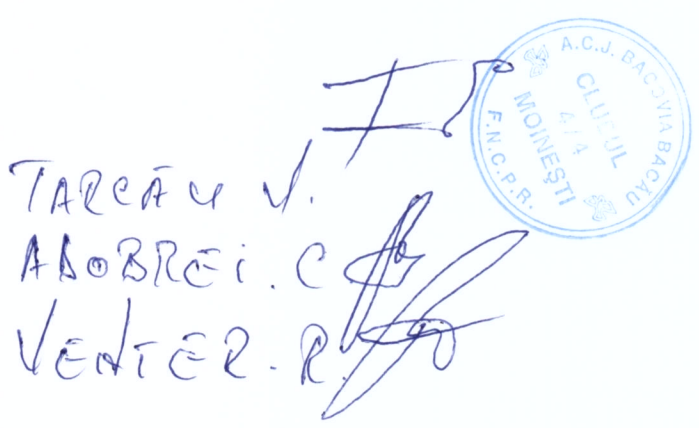 A.C.J. BACOVIA BACĂU
CLUBUL
4/4
MOINEȘTI
F.N.C.P.R.
TARCĂU V.
ADOBREI. C
VENTER. R.